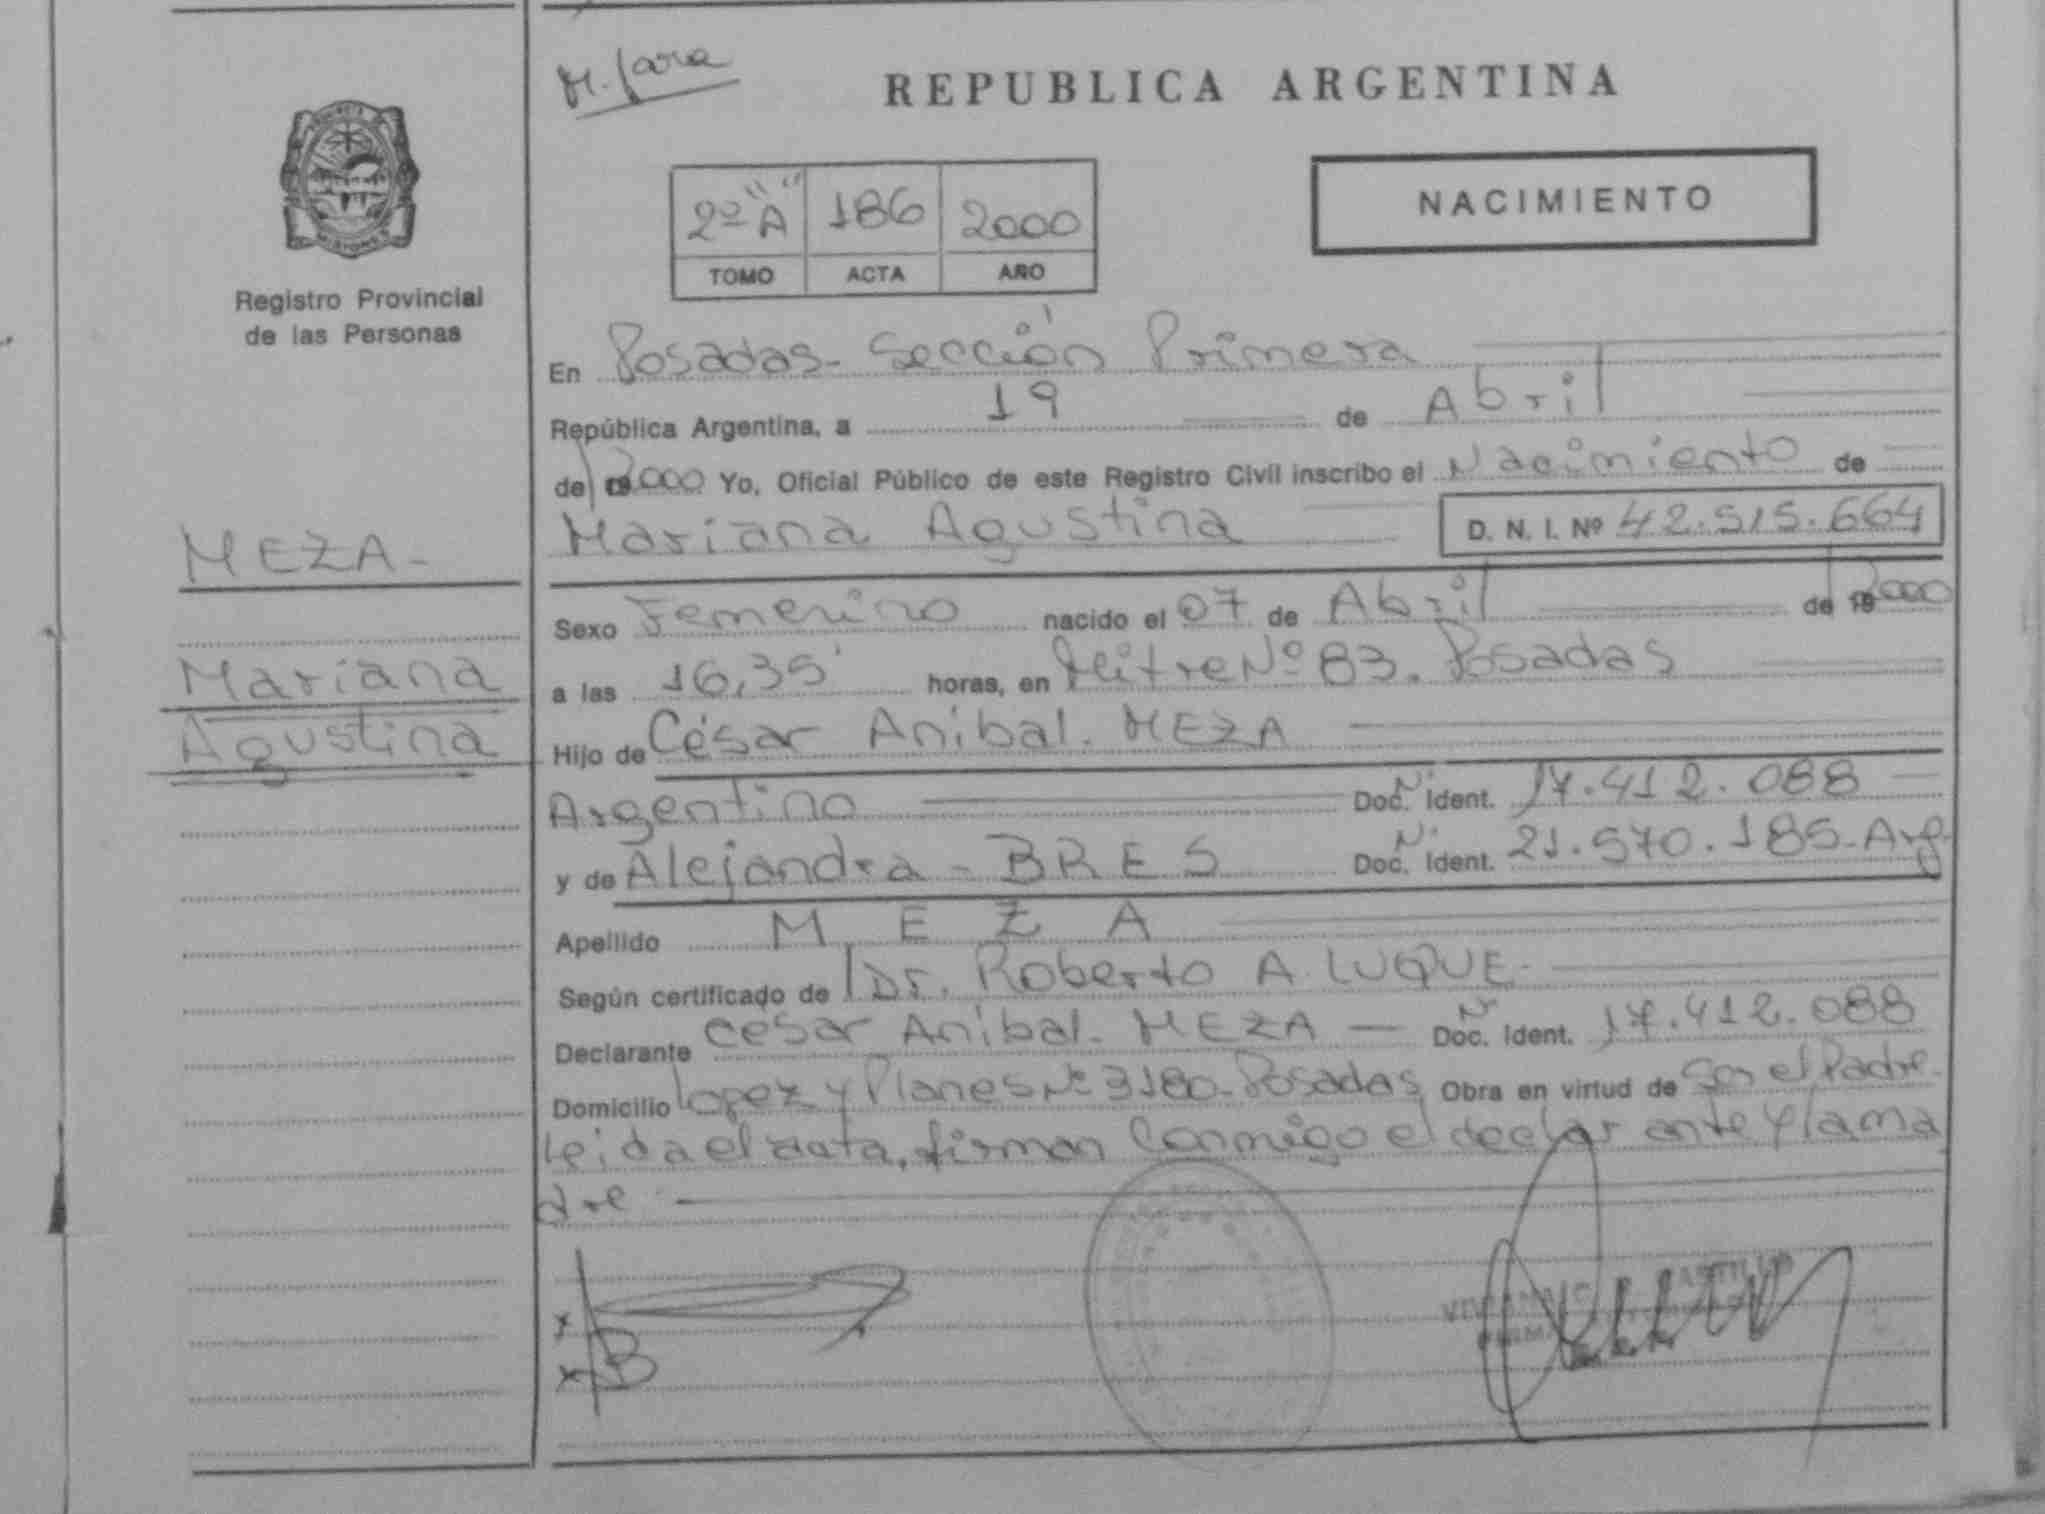 M. Jara
REPUBLICA ARGENTINA
2º "A" 186 2000
TOMO ACTA AÑO
NACIMIENTO
MISIONES
Registro Provincial
de las Personas
En Posadas - Sección Primera
República Argentina, a 19 de Abril
de 2000 Yo, Oficial Público de este Registro Civil inscribo el Nacimiento de
MEZA-
Mariana Agustina D. N. I. Nº 42.515.664
Sexo Femenino nacido el 07 de Abril de 19 2000
Mariana
a las 16,35' horas, en Mitre Nº 83. Posadas
Agustina
Hijo de César Aníbal. MEZA
Argentino Doc. Ident. Nº 17.412.088
y de Alejandra - BRES Doc. Ident. Nº 21.570.185-Arg.
Apellido MEZA
Según certificado de Dr. Roberto A. LUQUE-
Declarante César Aníbal. MEZA — Doc. Ident. Nº 17.412.088
Domicilio Lopez y Planes Nº 3180-Posadas Obra en virtud de Ser el Padre-
Leida el acta, firman Conmigo el declarante y la ma
dre
x
x B